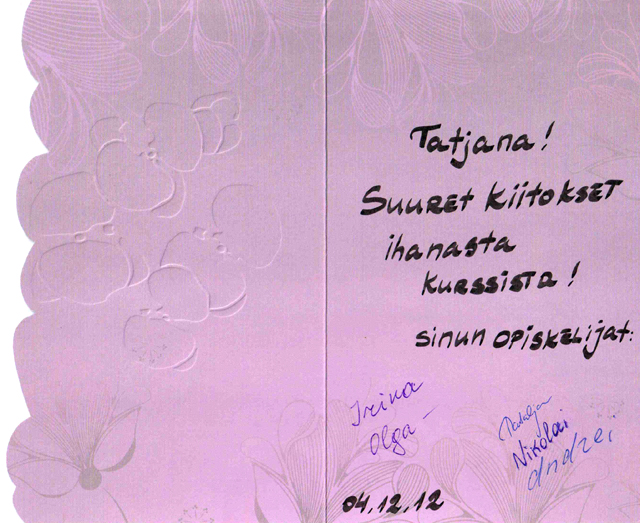 Tatjana!
Suuret kiitokset
ihanasta
kurssista!
sinun opiskelijat:
Irina
Olga
Natalja
Nikolai
Andrei
04.12.12